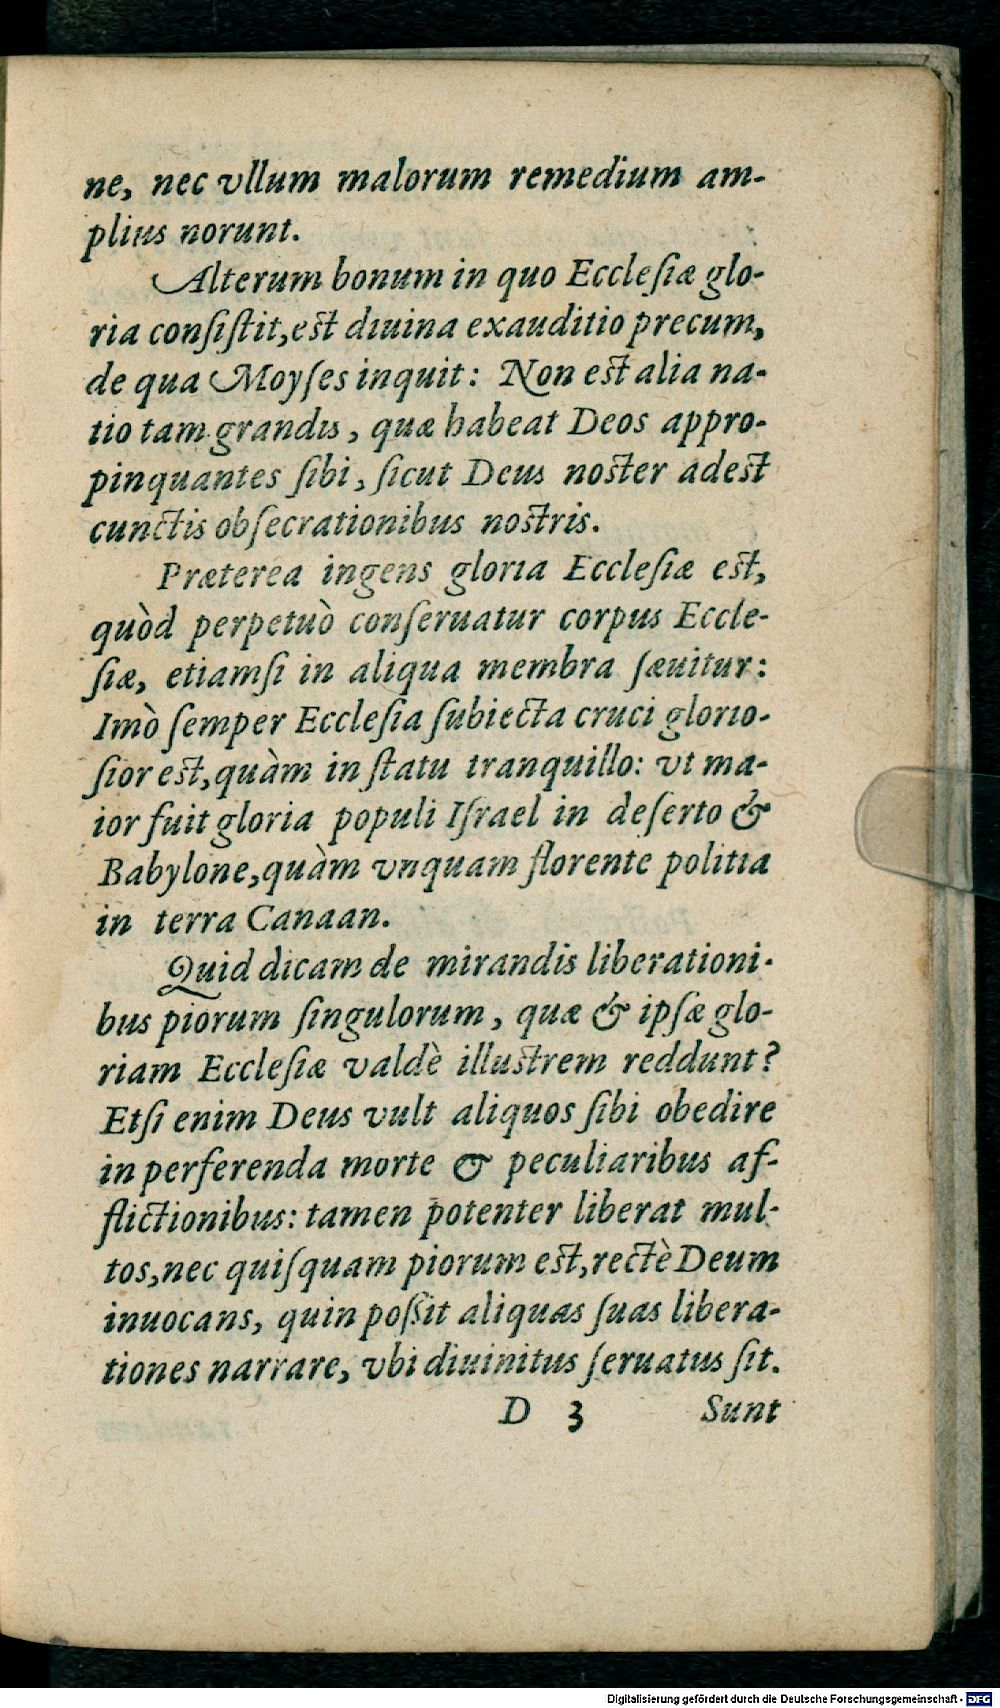 ne, nec vllum malorum remedium am-
plius norunt.
Alterum bonum in quo Eccleſiæ glo-
ria conſiſtit, eſt diuina exauditio precum,
de qua Moyſes inquit: Non eſt alia na-
tio tam grandis, quæ habeat Deos appro-
pinquantes ſibi, ſicut Deus noſter adeſt
cunctis obſecrationibus noſtris.
Præterea ingens gloria Eccleſiæ eſt,
quòd perpetuò conſeruatur corpus Eccle-
ſiæ, etiamſi in aliqua membra ſæuitur:
Imò ſemper Eccleſia ſubiecta cruci glorio-
ſior eſt, quàm in ſtatu tranquillo: vt ma-
ior fuit gloria populi Iſrael in deſerto &
Babylone, quàm vnquam florente politia
in terra Canaan.
Quid dicam de mirandis liberationi-
bus piorum ſingulorum, quæ & ipſæ glo-
riam Eccleſiæ valdè illuſtrem reddunt?
Etſi enim Deus vult aliquos ſibi obedire
in perferenda morte & peculiaribus af-
flictionibus: tamen potenter liberat mul-
tos, nec quiſquam piorum eſt, rectè Deum
inuocans, quin poſſit aliquas ſuas libera-
tiones narrare, vbi diuinitus ſeruatus ſit.
D 3 Sunt
Digitalisierung gefördert durch die Deutsche Forschungsgemeinschaft - DFG